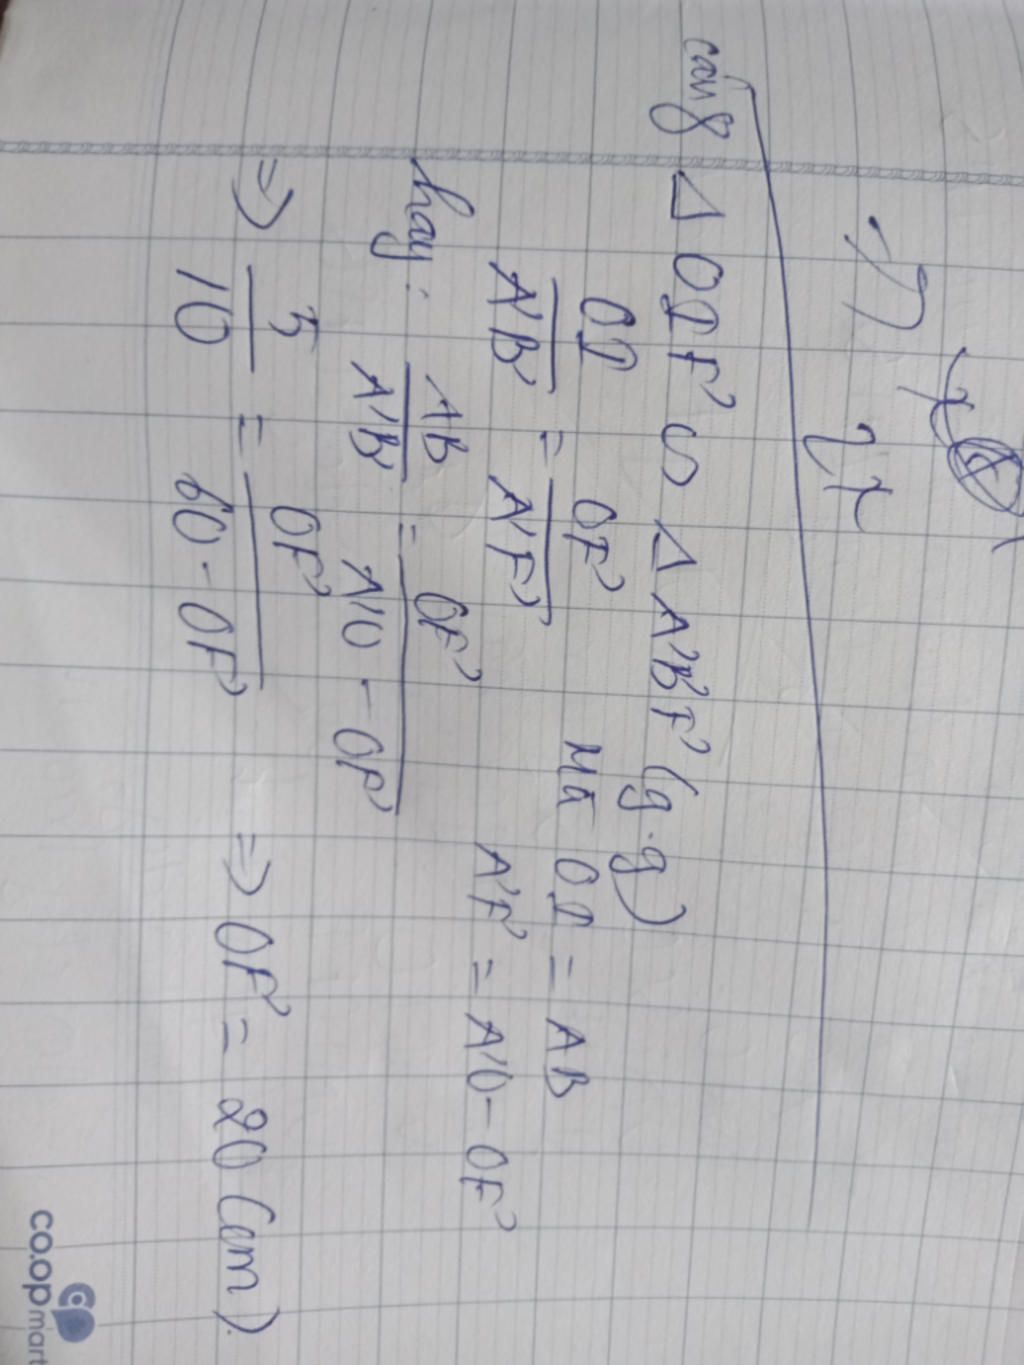 câu 8 Δ OIF' ∽ Δ A'B'F' (g.g)
OI/A'B' = OF'/A'F' Mà OI = AB
A'F' = A'O - OF'
hay: AB/A'B' = OF'/A'O - OF'
=> 5/10 = OF'/60 - OF' => OF' = 20 (cm).
co.opmart